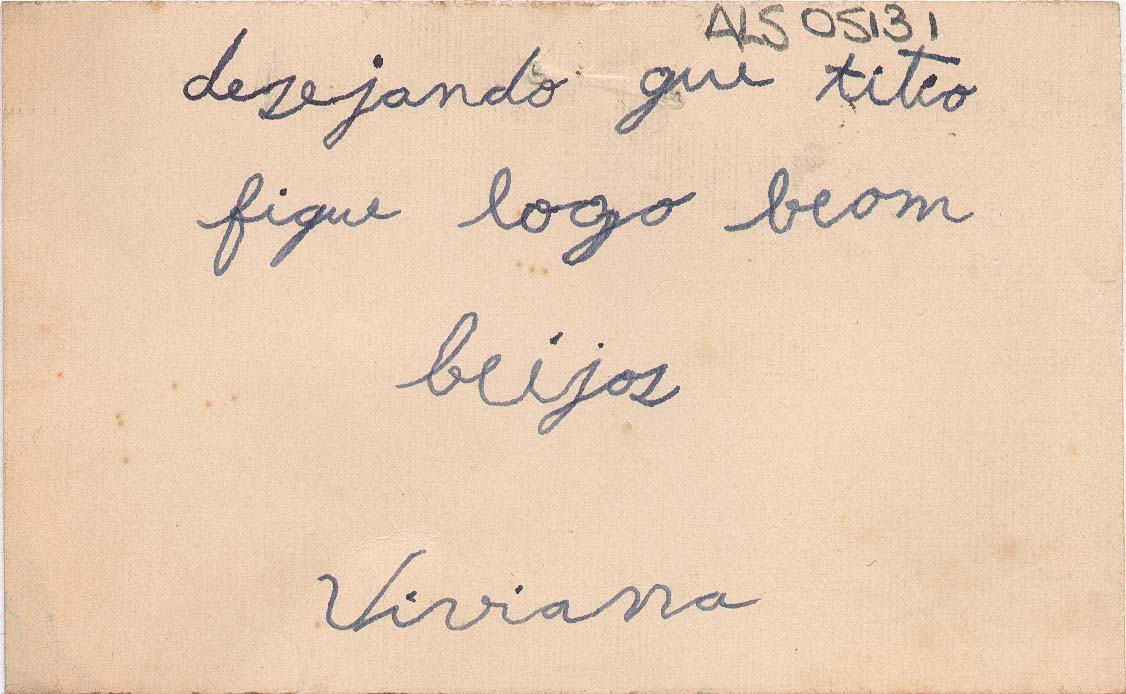 ALS 05131
desejando que titio
fique logo bom
beijos
Viviana